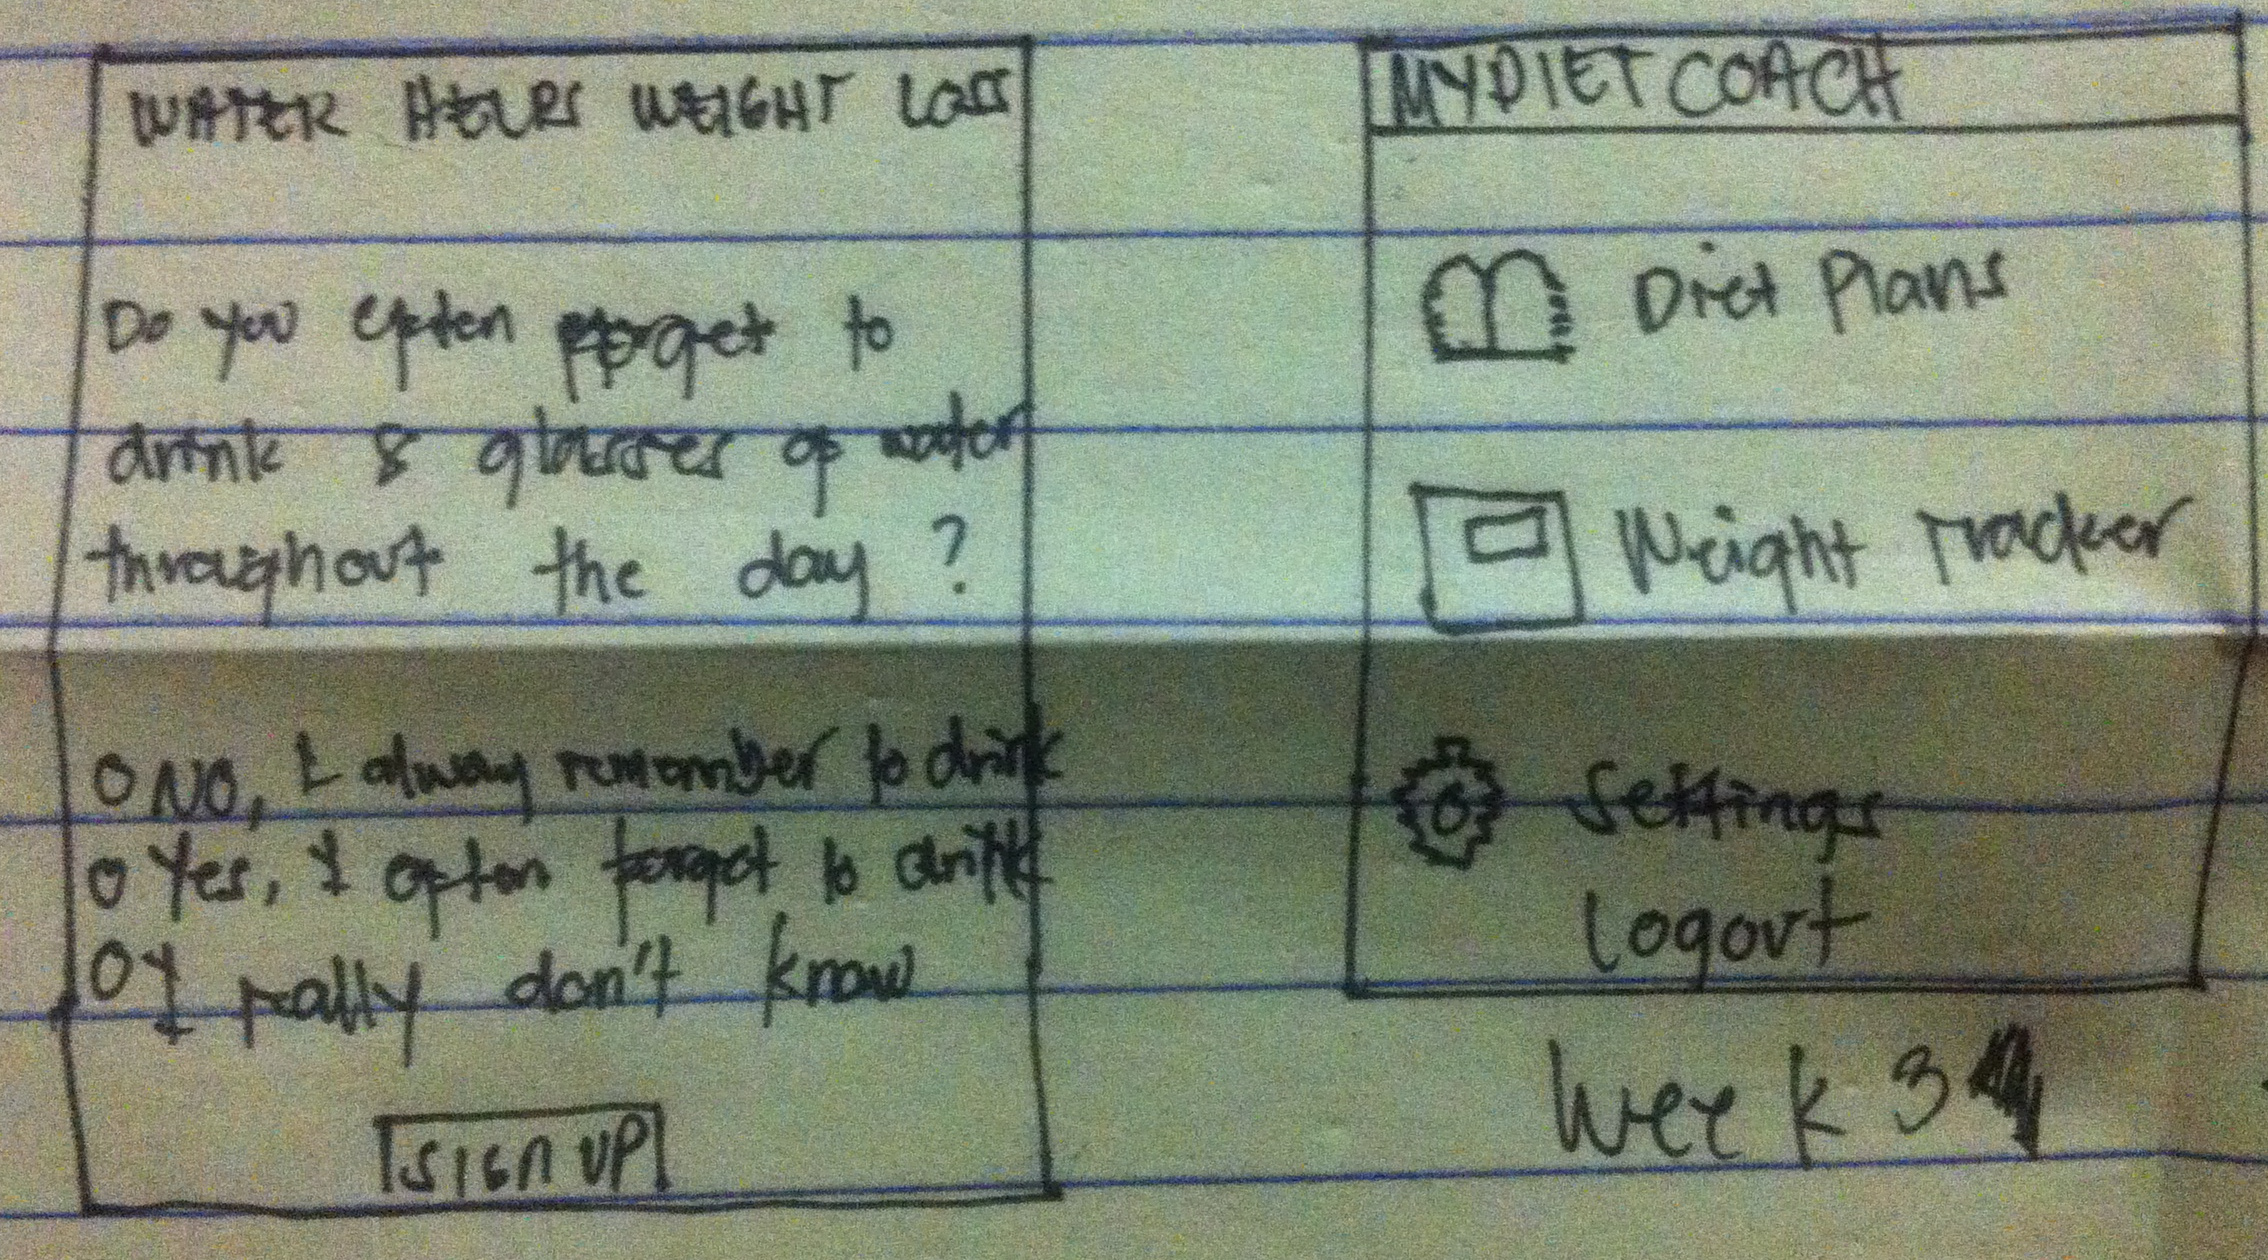 WATER HELPS WEIGHT LOSS
Do you often forget to
drink 8 glasses of water
throughout the day?
O NO, I alway remember to drink
O Yes, I often forget to drink
O I really don't know
SIGN UP
MYDIET COACH
Diet Plans
Weight Tracker
Settings
Logout
Week 3